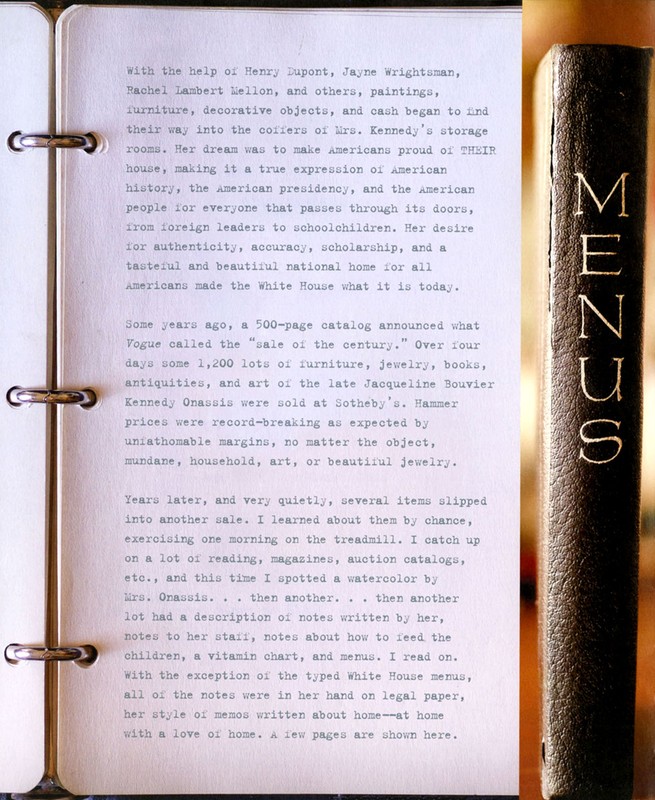 With the help of Henry Dupont, Jayne Wrightsman,
Rachel Lambert Mellon, and others, paintings,
furniture, decorative objects, and cash began to find
their way into the coffers of Mrs. Kennedy's storage
rooms. Her dream was to make Americans proud of THEIR
house, making it a true expression of American
history, the American presidency, and the American
people for everyone that passes through its doors,
from foreign leaders to schoolchildren. Her desire
for authenticity, accuracy, scholarship, and a
tasteful and beautiful national home for all
Americans made the White House what it is today.
Some years ago, a 500-page catalog announced what
Vogue called the "sale of the century." Over four
days some 1,200 lots of furniture, jewelry, books,
antiquities, and art of the late Jacqueline Bouvier
Kennedy Onassis were sold at Sotheby's. Hammer
prices were record-breaking as expected by
unfathomable margins, no matter the object,
mundane, household, art, or beautiful jewelry.
Years later, and very quietly, several items slipped
into another sale. I learned about them by chance,
exercising one morning on the treadmill. I catch up
on a lot of reading, magazines, auction catalogs,
etc., and this time I spotted a watercolor by
Mrs. Onassis. . . then another. . . then another
lot had a description of notes written by her,
notes to her staff, notes about how to feed the
children, a vitamin chart, and menus. I read on.
With the exception of the typed White House menus,
all of the notes were in her hand on legal paper,
her style of memos written about home—at home
with a love of home. A few pages are shown here.
MENUS